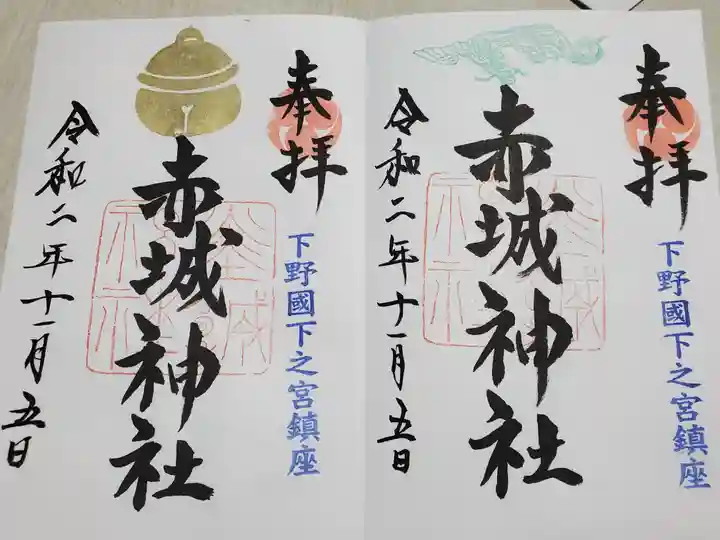 奉拝
下野國下之宮鎮座
赤城神社
令和二年十一月五日
奉拝
下野國下之宮鎮座
赤城神社
令和二年十一月五日